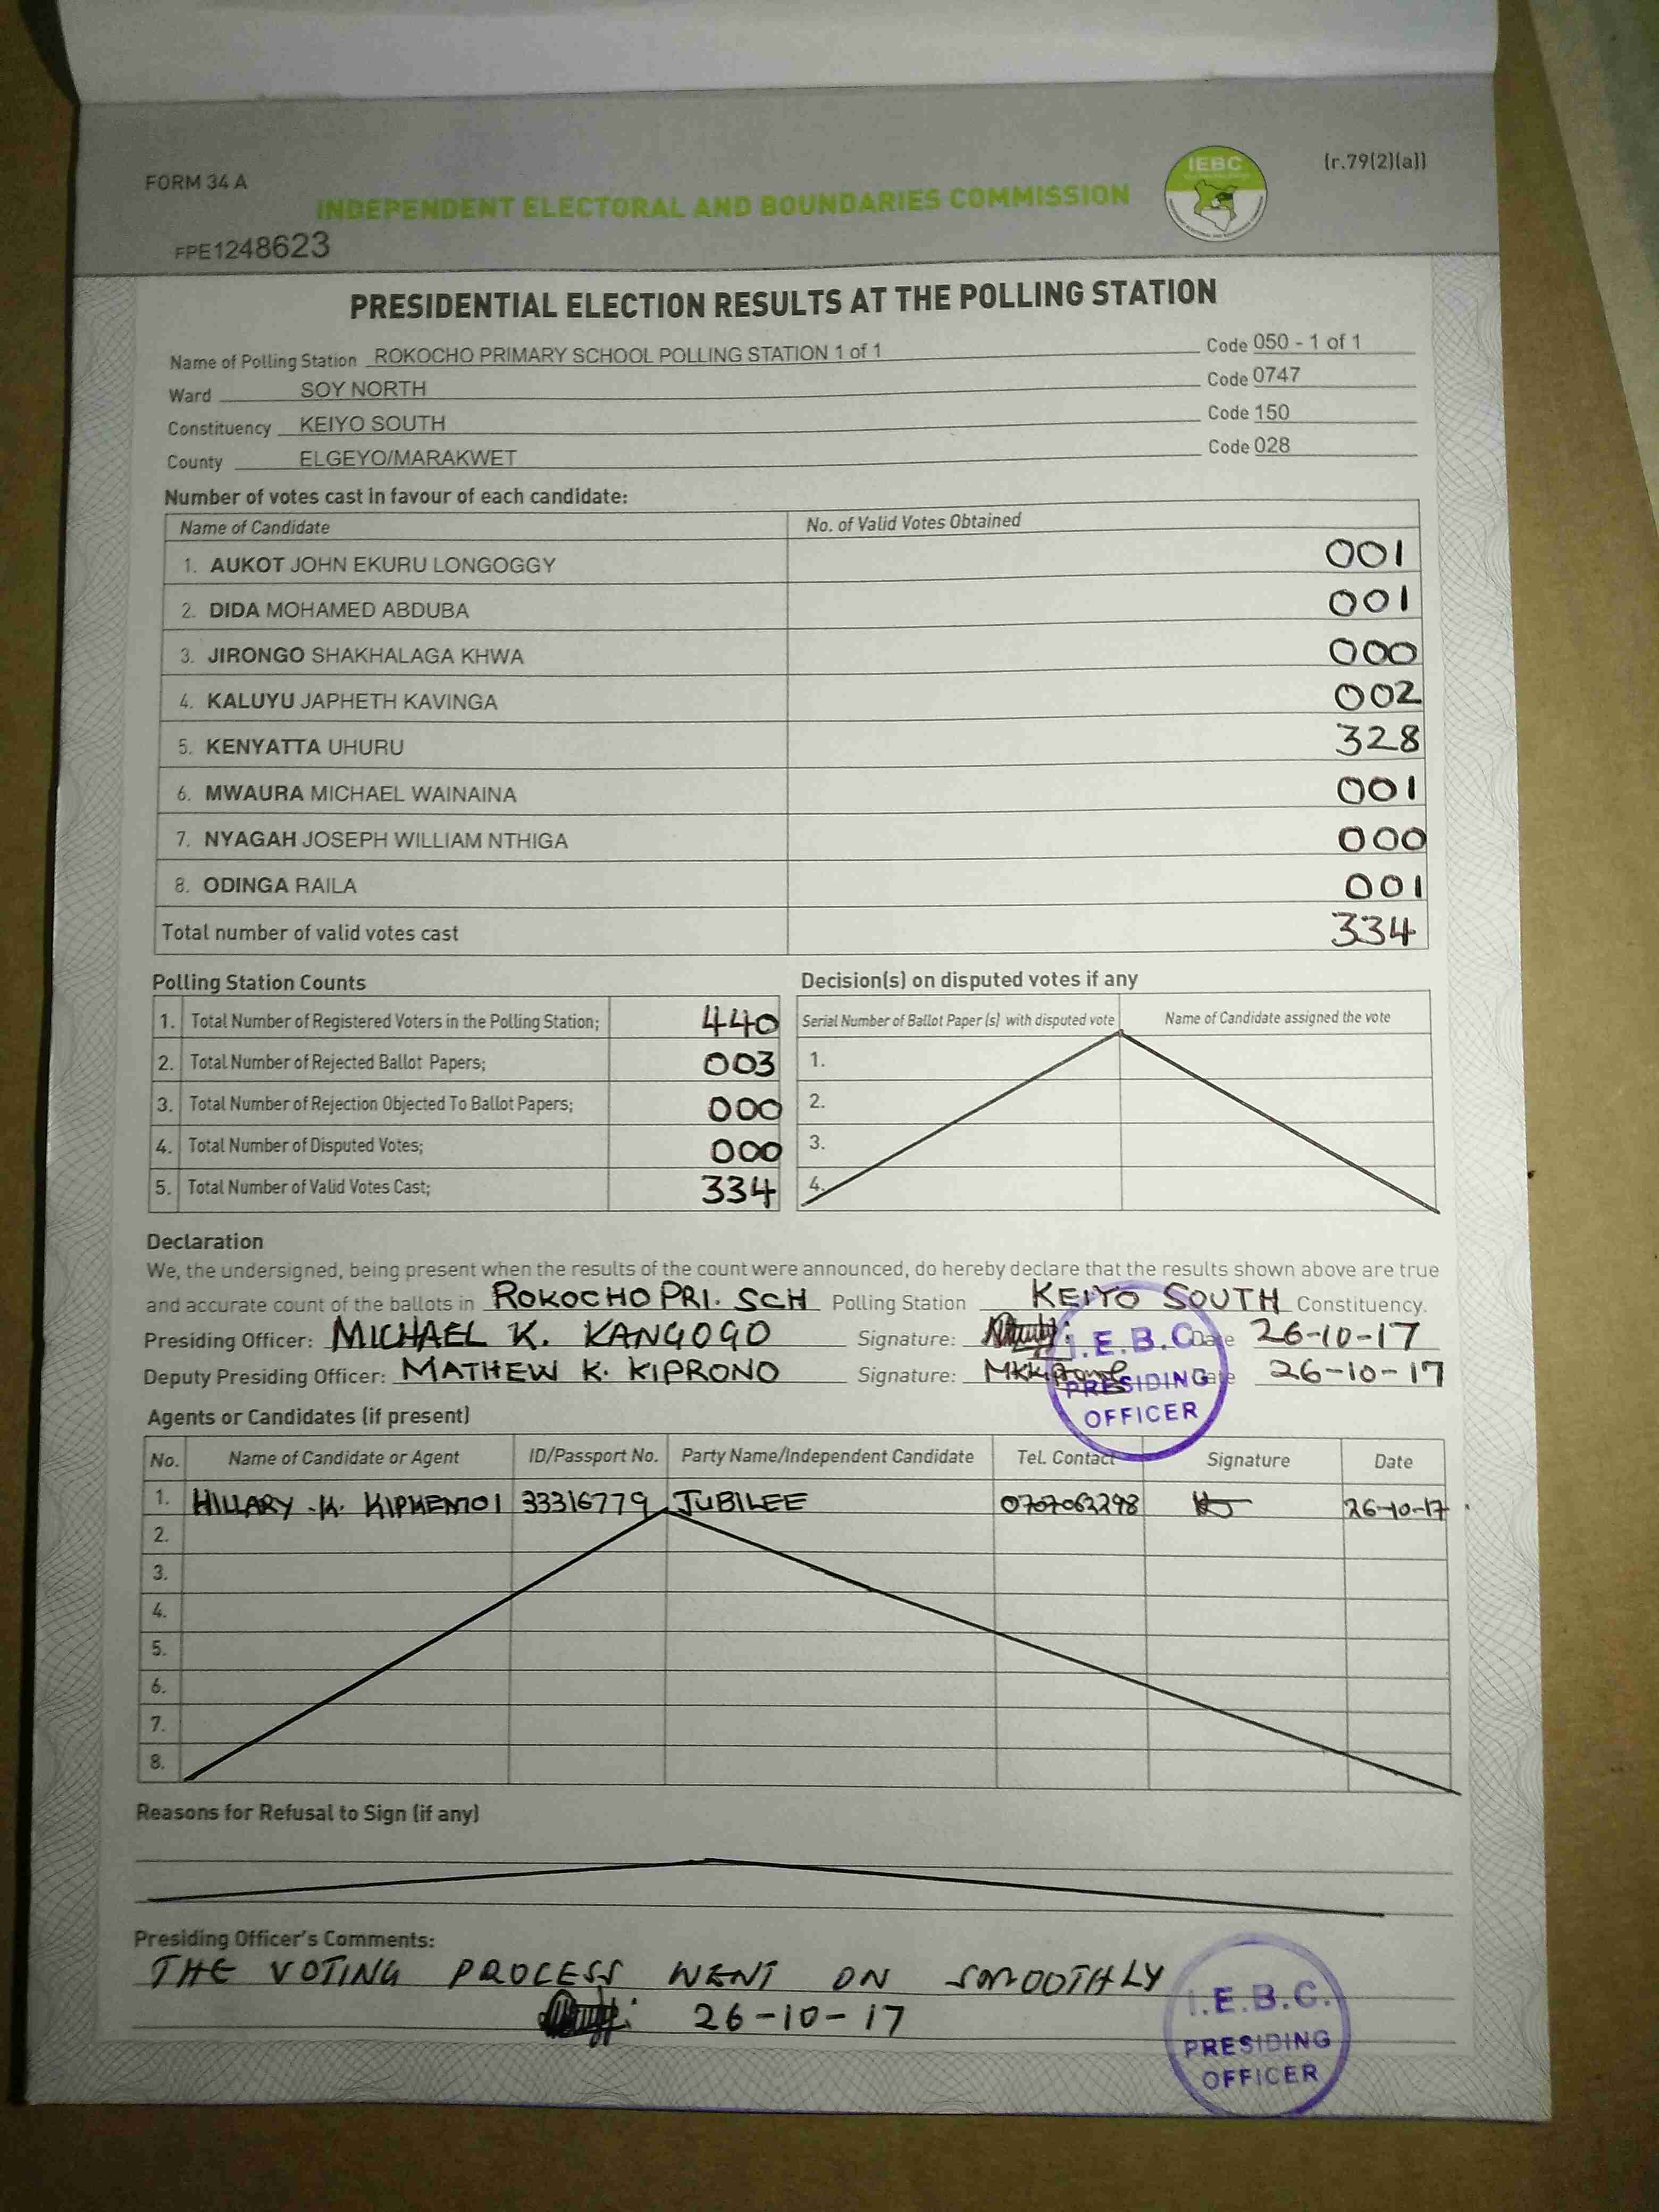 FORM 34 A
(r.79(2)(a))
IEBC
INDEPENDENT ELECTORAL AND BOUNDARIES COMMISSION
FPE1248623
PRESIDENTIAL ELECTION RESULTS AT THE POLLING STATION
Name of Polling Station ROKOCHO PRIMARY SCHOOL POLLING STATION 1 of 1 Code 050 - 1 of 1
Ward SOY NORTH Code 0747
Constituency KEIYO SOUTH Code 150
County ELGEYO/MARAKWET Code 028
Number of votes cast in favour of each candidate:
Name of Candidate No. of Valid Votes Obtained
1. AUKOT JOHN EKURU LONGOGGY 001
2. DIDA MOHAMED ABDUBA 001
3. JIRONGO SHAKHALAGA KHWA 000
4. KALUYU JAPHETH KAVINGA 002
5. KENYATTA UHURU 328
6. MWAURA MICHAEL WAINAINA 001
7. NYAGAH JOSEPH WILLIAM NTHIGA 000
8. ODINGA RAILA 001
Total number of valid votes cast 334
Polling Station Counts
1. Total Number of Registered Voters in the Polling Station; 440
2. Total Number of Rejected Ballot Papers; 003
3. Total Number of Rejection Objected To Ballot Papers; 000
4. Total Number of Disputed Votes; 000
5. Total Number of Valid Votes Cast; 334
Decision(s) on disputed votes if any
Serial Number of Ballot Paper (s) with disputed vote Name of Candidate assigned the vote
1.
2.
3.
4.
Declaration
We, the undersigned, being present when the results of the count were announced, do hereby declare that the results shown above are true
and accurate count of the ballots in ROKOCHO PRI. SCH Polling Station KEIYO SOUTH Constituency.
Presiding Officer: MICHAEL K. KANGOGO Signature: Date 26-10-17
Deputy Presiding Officer: MATHEW K. KIPRONO Signature: Date 26-10-17
I.E.B.C
PRESIDING
OFFICER
Agents or Candidates (if present)
No. Name of Candidate or Agent ID/Passport No. Party Name/Independent Candidate Tel. Contact Signature Date
1. HILLARY K. 33316779 JUBILEE 0707062298 26-10-17
2.
3.
4.
5.
6.
7.
8.
Reasons for Refusal to Sign (if any)
Presiding Officer's Comments:
THE VOTING PROCESS WENT ON SMOOTHLY
26-10-17
I.E.B.C.
PRESIDING
OFFICER